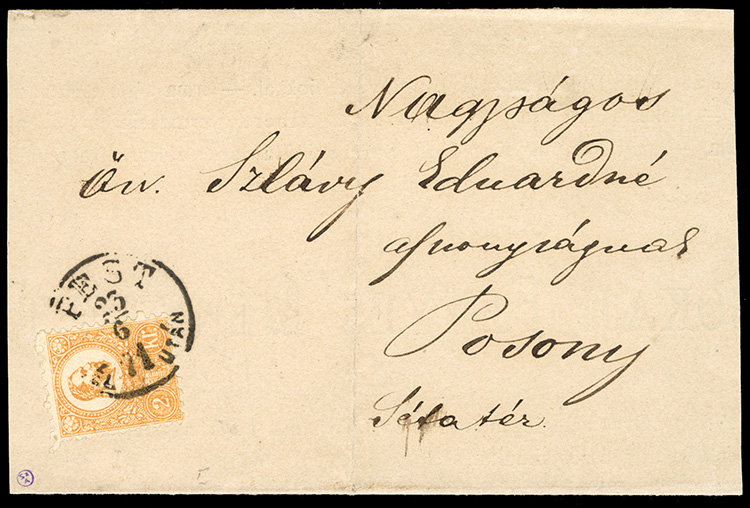 Nagyságos
Öv. Szlávy Eduardné
asszonyságnak
Posony
Sétatér.
PEST
71
UTÁN
2